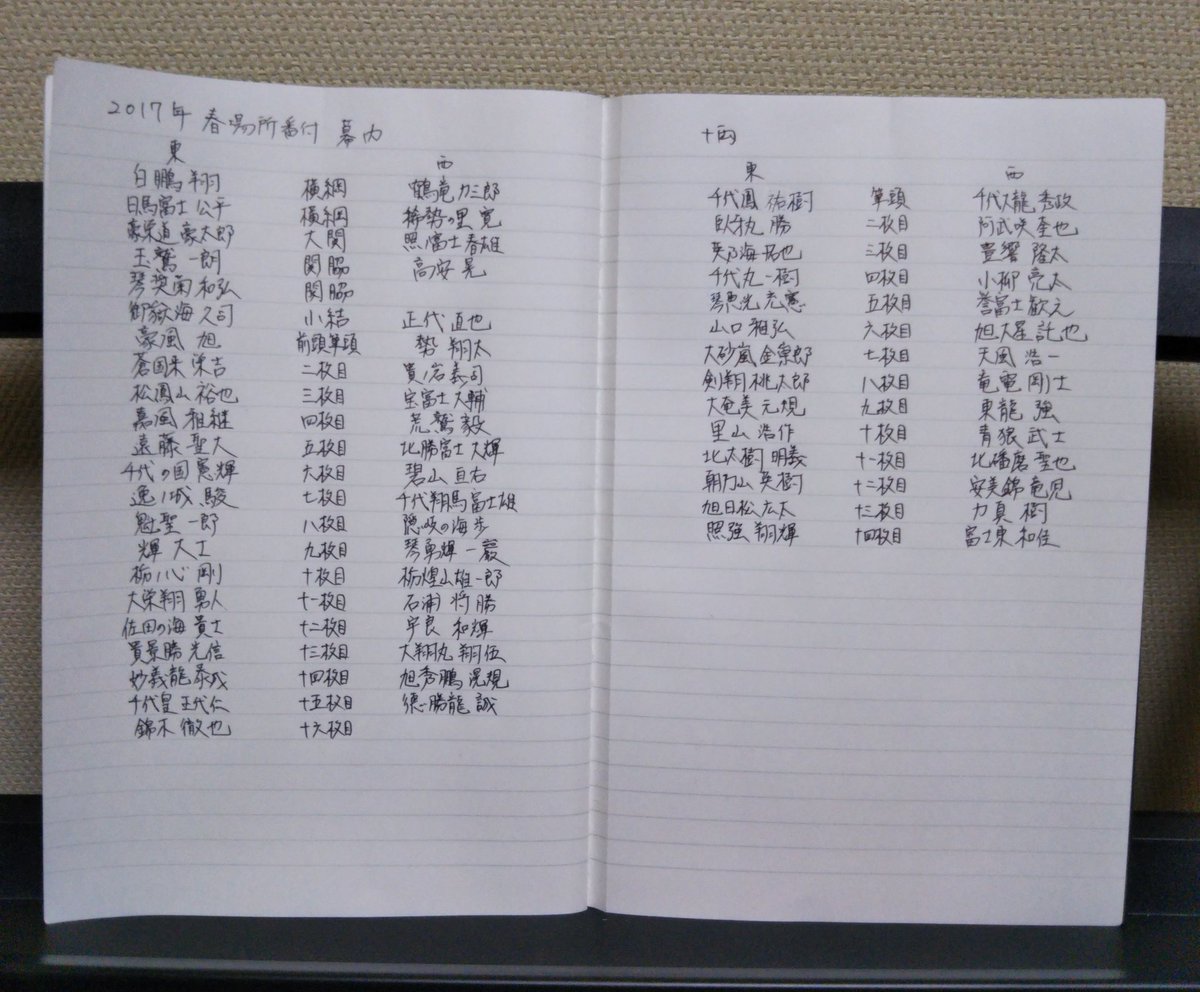 2017年 春場所番付 幕内
東 西
白鵬 翔 横綱 鶴竜 力三郎
日馬富士 公平 横綱 稀勢の里 寛
豪栄道 豪太郎 大関 照ノ富士 春雄
玉鷲 一朗 関脇 高安 晃
琴奨菊 和弘 関脇
御嶽海 久司 小結 正代 直也
豪風 旭 前頭筆頭 勢 翔太
蒼国来 栄吉 二枚目 貴ノ岩 義司
松鳳山 裕也 三枚目 宝富士 大輔
嘉風 雅継 四枚目 荒鷲 毅
遠藤 聖大 五枚目 北勝富士 大輝
千代の国 憲輝 六枚目 碧山 亘右
逸ノ城 駿 七枚目 千代翔馬 富士雄
魁聖 一郎 八枚目 隠岐の海 歩
輝 大士 九枚目 琴勇輝 一巖
栃ノ心 剛 十枚目 栃煌山 雄一郎
大栄翔 勇人 十一枚目 石浦 将勝
佐田の海 貴士 十二枚目 宇良 和輝
貴景勝 光信 十三枚目 大翔丸 翔伍
妙義龍 泰成 十四枚目 旭秀鵬 滉規
千代皇 王代仁 十五枚目 徳勝龍 誠
錦木 徹也 十六枚目
十両
東 西
千代鳳 祐樹 筆頭 千代大龍 秀政
臥牙丸 勝 二枚目 阿武咲 奎也
英乃海 拓也 三枚目 豊響 隆太
千代丸 一樹 四枚目 小柳 亮太
琴恵光 充憲 五枚目 誉富士 歓之
山口 雅弘 六枚目 旭大星 託也
大砂嵐 金崇郎 七枚目 天風 浩一
剣翔 桃太郎 八枚目 竜電 剛士
大奄美 元規 九枚目 東龍 強
里山 浩作 十枚目 青狼 武士
北太樹 明義 十一枚目 北磻磨 聖也
朝乃山 英樹 十二枚目 安美錦 竜児
旭日松 広太 十三枚目 力真 樹
照強 翔輝 十四枚目 富士東 和佳